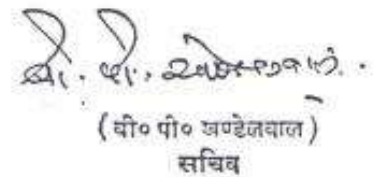 वी. पी. खण्डेलवाल.
(वी० पी० खण्डेलवाल)
सचिव